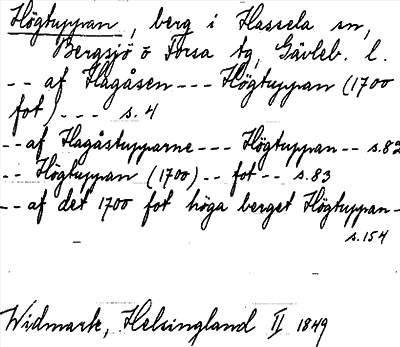 Högtuppan, berg i Hassela sn,
Bergsjö o Forsa tg, Gävleb. l.
-- af Hagåsen --- Högtuppan (1700
fot) --- s. 4
-- af Hagåstupparne --- Högtuppan -- s. 82
-- Högtuppan (1700) -- fot -- s. 83
-- af det 1700 fot höga berget Högtuppan -
s. 154
Widmark, Helsingland II 1849